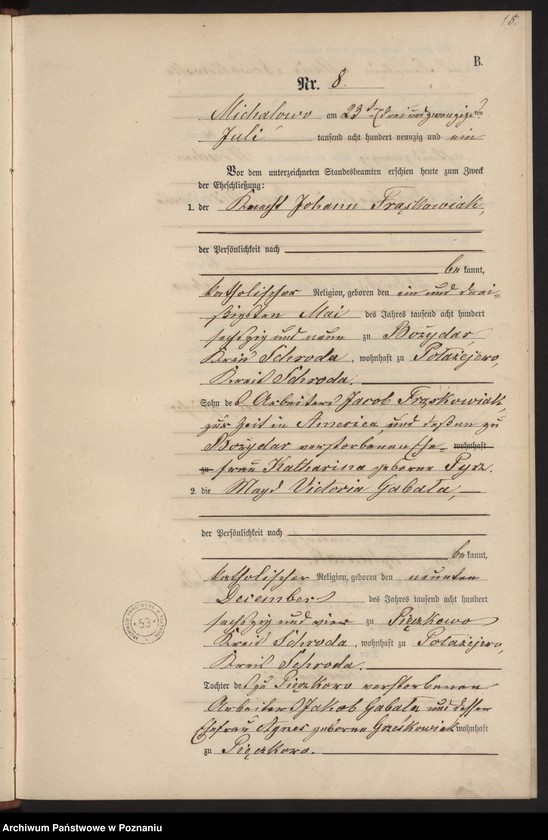 15.
B.
Nr. 8.
Michalowo am 23ten (drei und zwanzigsten)
Juli tausend acht hundert neunzig und ein
Vor dem unterzeichneten Standesbeamten erschien heute zum Zweck
der Eheschließung:
1. der Knecht Johann Frąskowiak,
der Persönlichkeit nach
bekannt,
katholischer Religion, geboren den ein und drei-
ßigsten Mai des Jahres tausend acht hundert
sechszig und neun zu Bożydar,
Kreis Schroda, wohnhaft zu Połażejewo,
Kreis Schroda.
Sohn des Arbeiters Jacob Frąskowiak,
zur Zeit in America, und dessen zu
Bożydar verstorbenen Ehe- wohnhaft
zu frau Katharina geborne Pyrz.
2. die Magd Victoria Gabała,
der Persönlichkeit nach
bekannt,
katholischer Religion, geboren den neunten
December des Jahres tausend acht hundert
sechszig und vier zu Pięczkowo
Kreis Schroda, wohnhaft zu Połażejewo,
Kreis Schroda.
Tochter des zu Pięczkowo verstorbenen
Arbeiters Jakob Gabała und dessen
Ehefrau Agnes geborne wohnhaft
zu Pięczkowo.
53
Archiwum Państwowe w Poznaniu